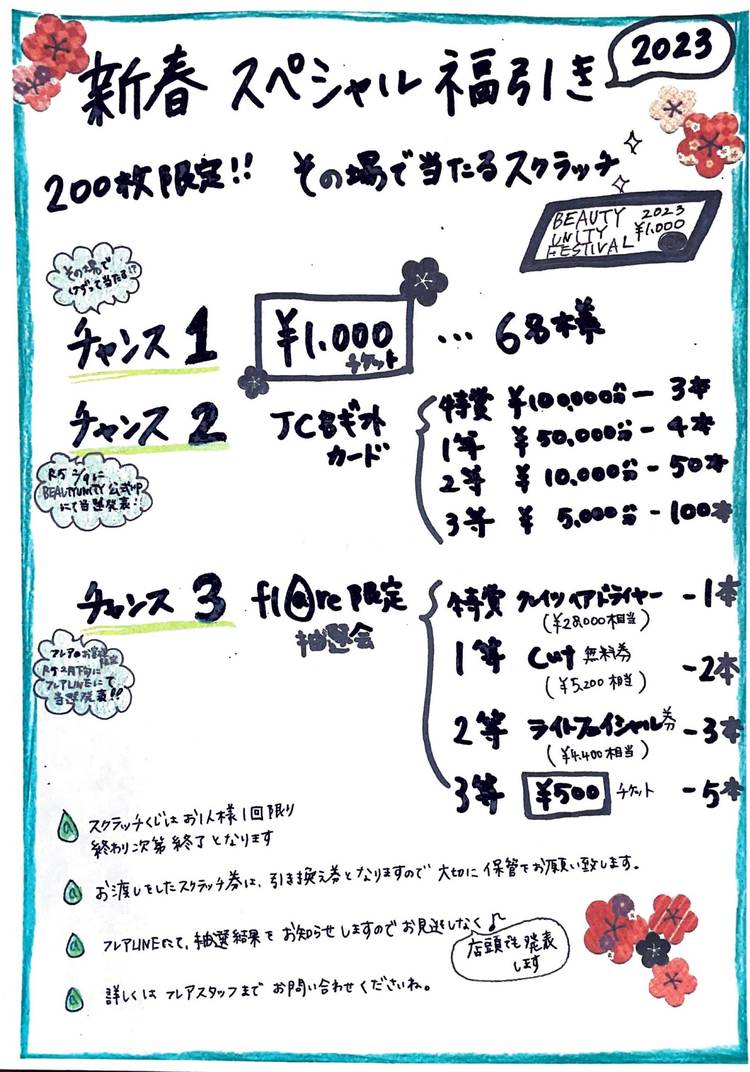 新春 スペシャル 福引き
2023
200枚限定!! その場で当たるスクラッチ
BEAUTY
UNITY
FESTIVAL
2023
¥1,000
その場で
けずって当たる!?
チャンス 1
¥1.000
チケット
… 6名様
チャンス 2
R5 2/9に
BEAUTYUNITY公式HP
にて当選発表!!
JCBギフト
カード
特賞 ¥100,000分 ー 3本
1等 ¥50,000分 ー 4本
2等 ¥10,000分 ー 50本
3等 ¥5,000分 ー 100本
チャンス 3
フレアのお客様限定
R5 2月下旬に
フレアLINEにて
当選発表!!
fl@re 限定
抽選会
特賞 クレイツ ヘアドライヤー ー 1本
(¥28,000相当)
1等 Cut 無料券 ー 2本
(¥5,200相当)
2等 ライトフェイシャル券 ー 3本
(¥4,400相当)
3等 ¥500 チケット ー 5本
スクラッチくじは お1人様 1回限り
終わり次第 終了となります
お渡しをしたスクラッチ券は、引き換え券となりますので 大切に 保管をお願い致します。
フレアLINEにて、抽選結果を お知らせしますのでお見逃しなく♪
店頭でも発表
します
詳しくは フレアスタッフまで お問い合わせくださいね。